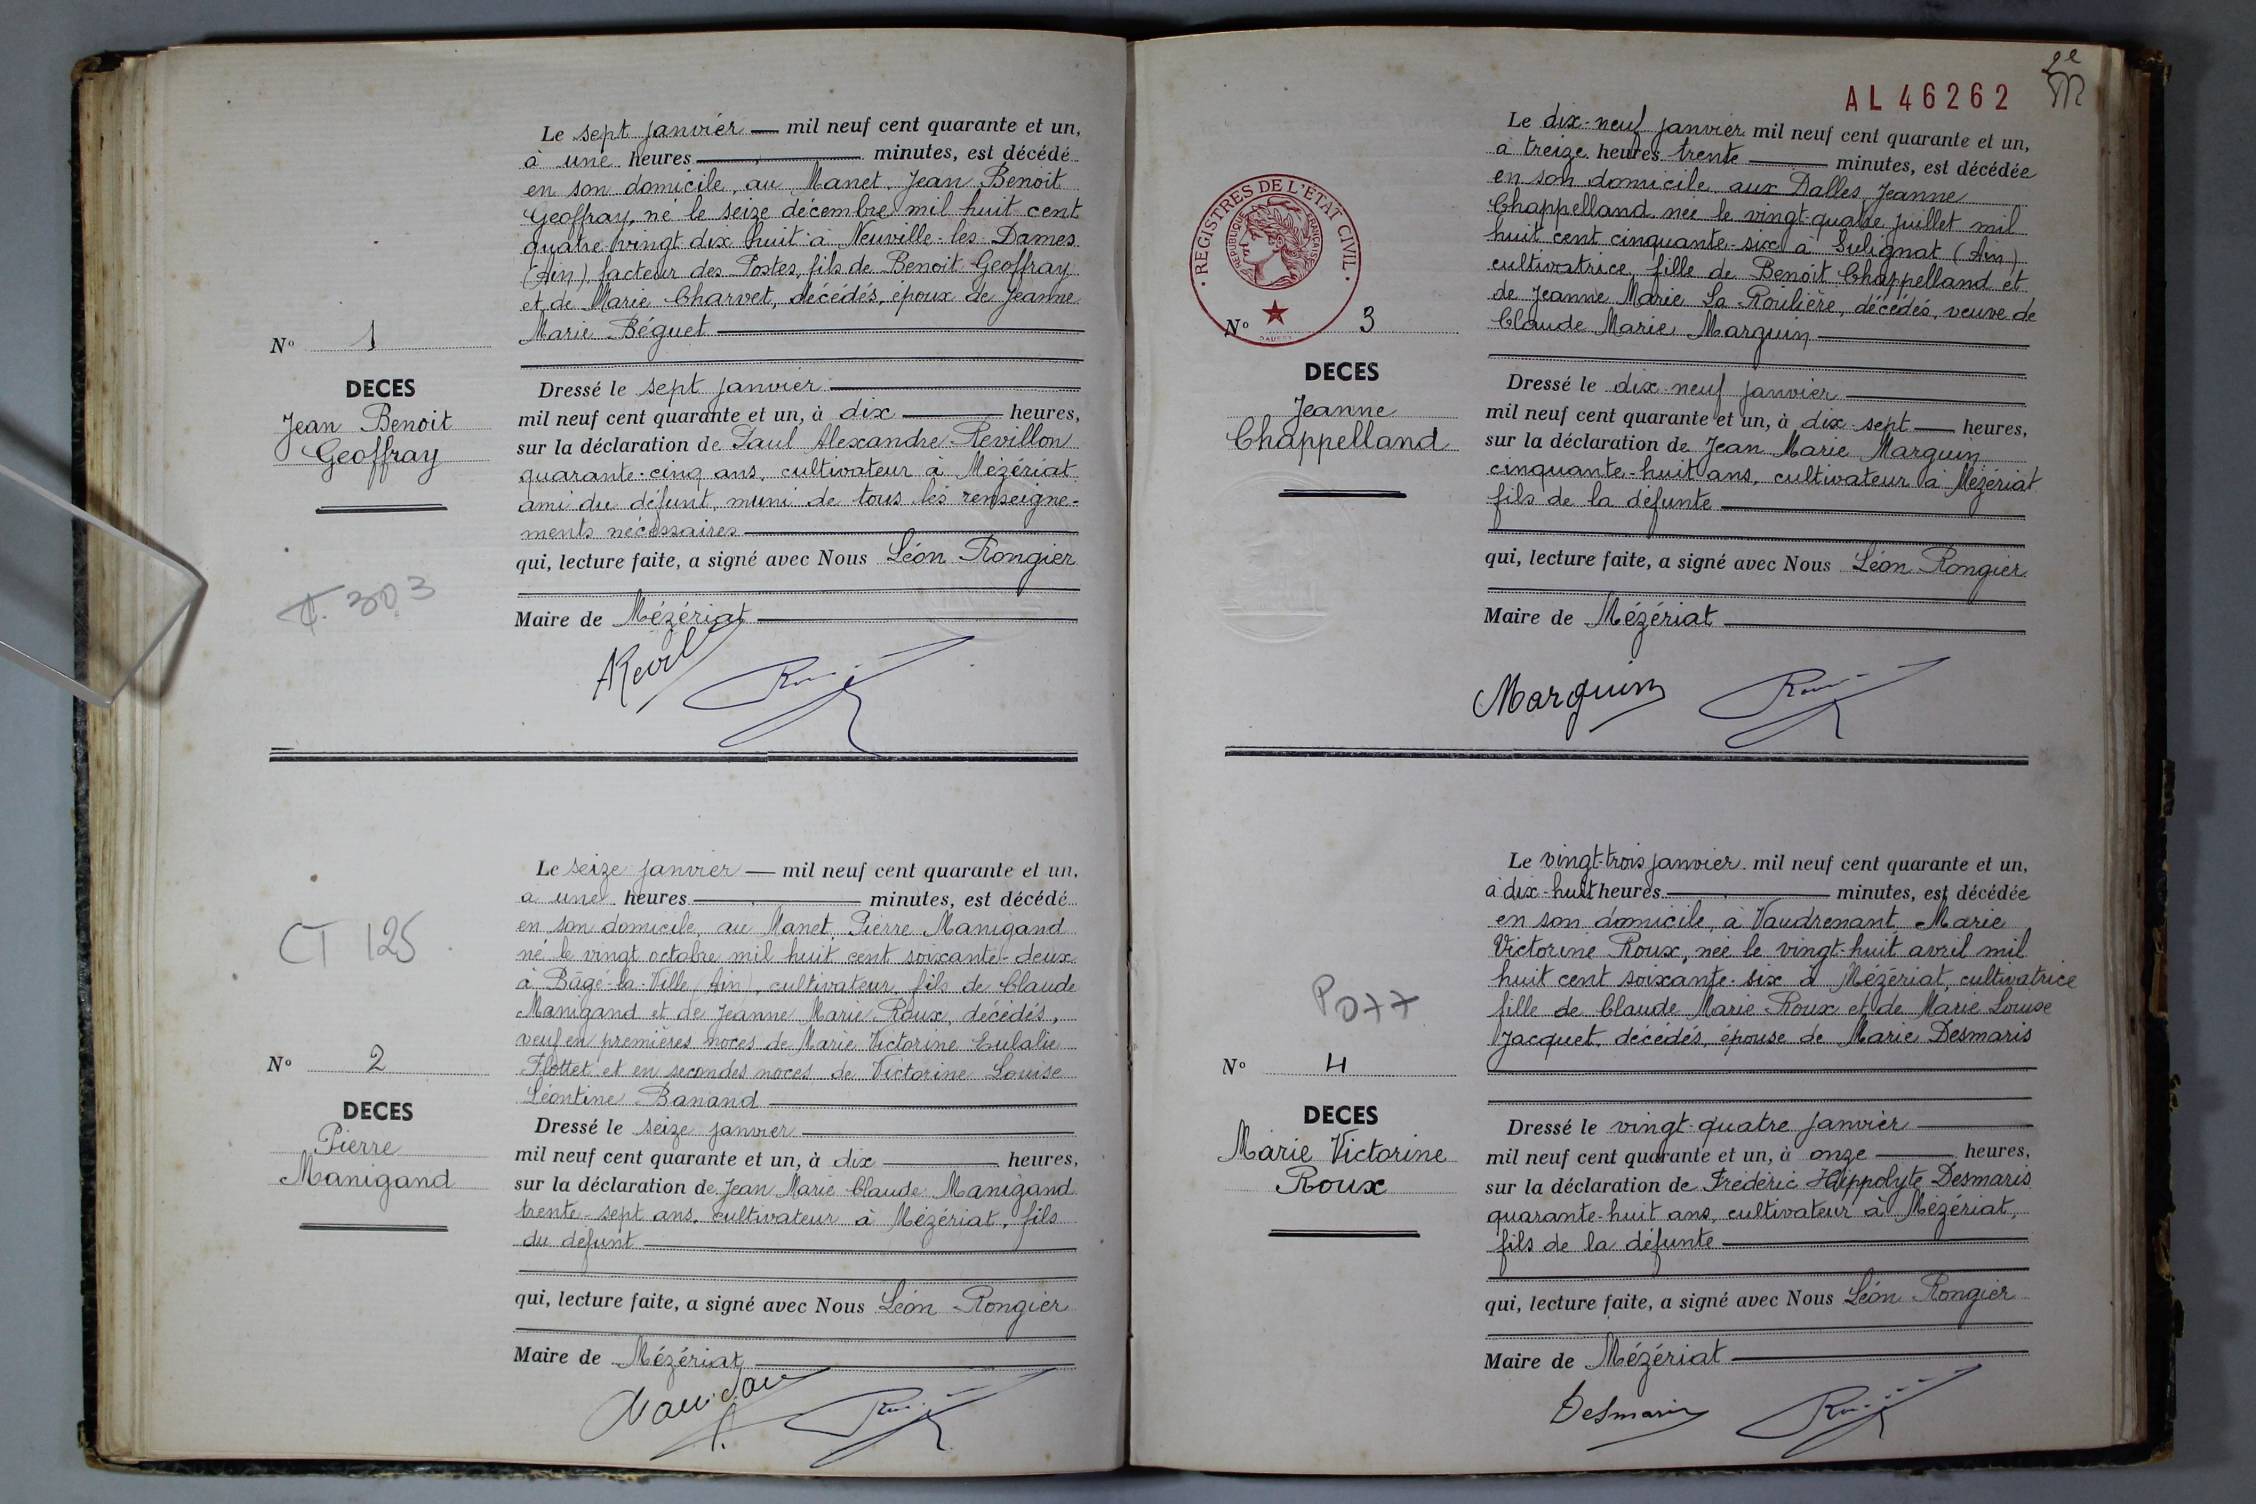 Le sept janvier mil neuf cent quarante et un,
à une heures minutes, est décédé
en son domicile, au Manet, Jean Benoit
Geoffray, né le seize décembre mil huit cent
quatre-vingt-dix huit à Neuville-les-Dames
(Ain), facteur des Postes, fils de Benoit Geoffray
et de Marie Charvet, décédés, époux de Jeanne
Marie Béguet
N° 1
DECES
Jean Benoit
Geoffray
Dressé le sept janvier
mil neuf cent quarante et un, à dix heures,
sur la déclaration de Paul Alexandre Revillon
quarante-cinq ans, cultivateur à Mézériat
ami du défunt, muni de tous les renseigne-
ments nécessaires
qui, lecture faite, a signé avec Nous Léon Rongier
Maire de Mézériat
303
Le seize janvier mil neuf cent quarante et un,
à une heures minutes, est décédé
en son domicile, au Manet, Pierre Manigand
né le vingt octobre mil huit cent soixante-deux
à Bâgé-la-Ville (Ain), cultivateur, fils de Claude
Manigand et de Jeanne Marie Roux, décédés,
veuf en premières noces de Marie Victorine Eulalie
Flottet et en secondes noces de Victorine Louise
Léontine Banand
CT 125
N° 2
DECES
Pierre
Manigand
Dressé le seize janvier
mil neuf cent quarante et un, à dix heures,
sur la déclaration de Jean Marie Claude Manigand
trente-sept ans, cultivateur à Mézériat, fils
du défunt
qui, lecture faite, a signé avec Nous Léon Rongier
Maire de Mézériat
AL 46262
2e
Le dix-neuf janvier mil neuf cent quarante et un,
à treize heures trente minutes, est décédée
en son domicile aux Dalles, Jeanne
Chappelland née le vingt-quatre juillet mil
huit cent cinquante-six à Sulignat (Ain)
cultivatrice, fille de Benoît Chappelland et
de Jeanne Marie La Roulière, décédés, veuve de
Claude Marie Marguin
REGISTRES DE L'ÉTAT CIVIL
RÉPUBLIQUE FRANÇAISE
N° 3
DECES
Jeanne
Chappelland
Dressé le dix-neuf janvier
mil neuf cent quarante et un, à dix-sept heures,
sur la déclaration de Jean Marie Marguin
cinquante-huit ans, cultivateur à Mézériat
fils de la défunte
qui, lecture faite, a signé avec Nous Léon Rongier
Maire de Mézériat
Marguin
Le vingt-trois janvier mil neuf cent quarante et un,
à dix-huit heures minutes, est décédée
en son domicile, à Vaudrenant, Marie
Victorine Roux, née le vingt-huit avril mil
huit cent soixante-six à Mézériat, cultivatrice
fille de Claude Marie Roux et de Marie Louise
Jacquet, décédés, épouse de Marie Desmaris
P077
N° 4
DECES
Marie Victorine
Roux
Dressé le vingt-quatre janvier
mil neuf cent quarante et un, à onze heures,
sur la déclaration de Frédéric Hippolyte Desmaris
quarante-huit ans, cultivateur à Mézériat,
fils de la défunte
qui, lecture faite, a signé avec Nous Léon Rongier
Maire de Mézériat
Desmaris